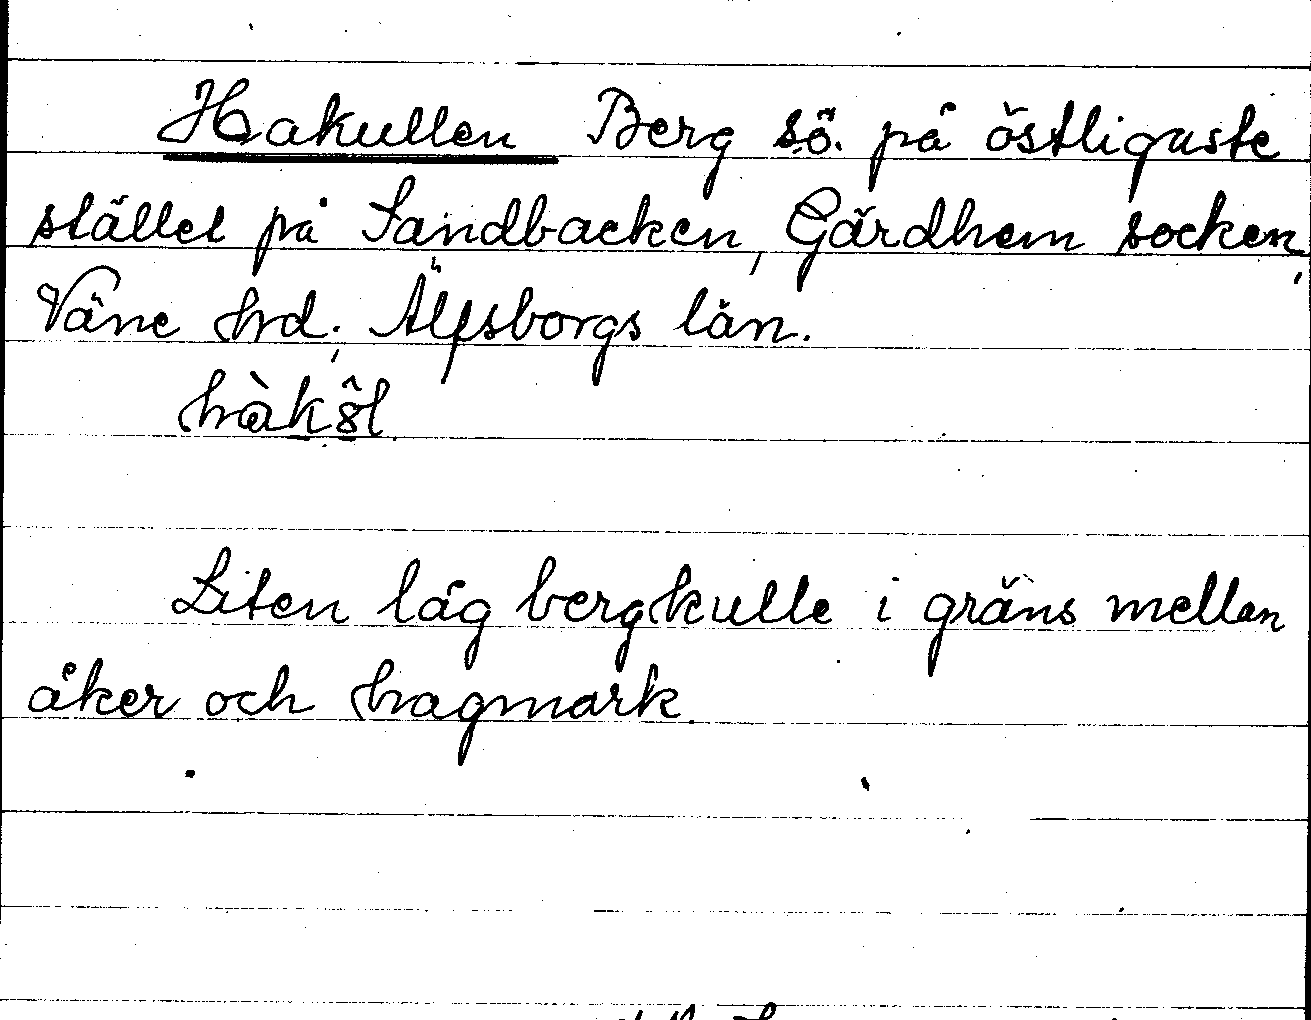 Hakullen Berg sö. på östligaste
stället på Sandbacken, Gärdhem socken,
Väne hrd; Älfsborgs län.
hàkôl
Liten låg bergkulle i gräns mellan
åker och hagmark.